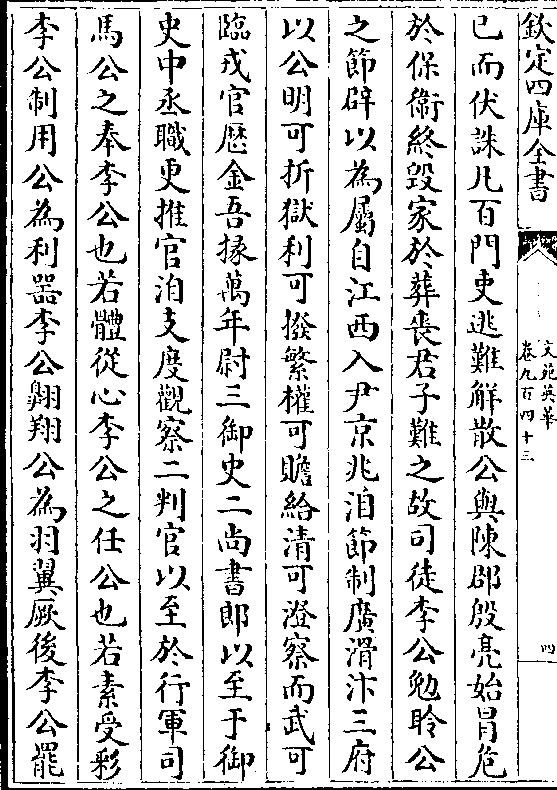 欽定四庫全書
文苑英華
卷九百四十三
四
已而伏誅凡百門吏逃難解散公與陳郡殷亮始冒危
於保衛終毀家於葬喪君子難之故司徒李公勉聆公
之節辟以為屬自江西入尹京兆洎節制廣滑汴三府
以公明可折獄利可撥繁權可贍給清可澄察而武可
臨戎官歴金吾掾萬年尉三御史二尚書郎以至于御
史中丞職更推官洎支度觀察二判官以至於行軍司
馬公之奉李公也若體從心李公之任公也若素受彩
李公制用公為利器李公翺翔公為羽翼厥後李公罷